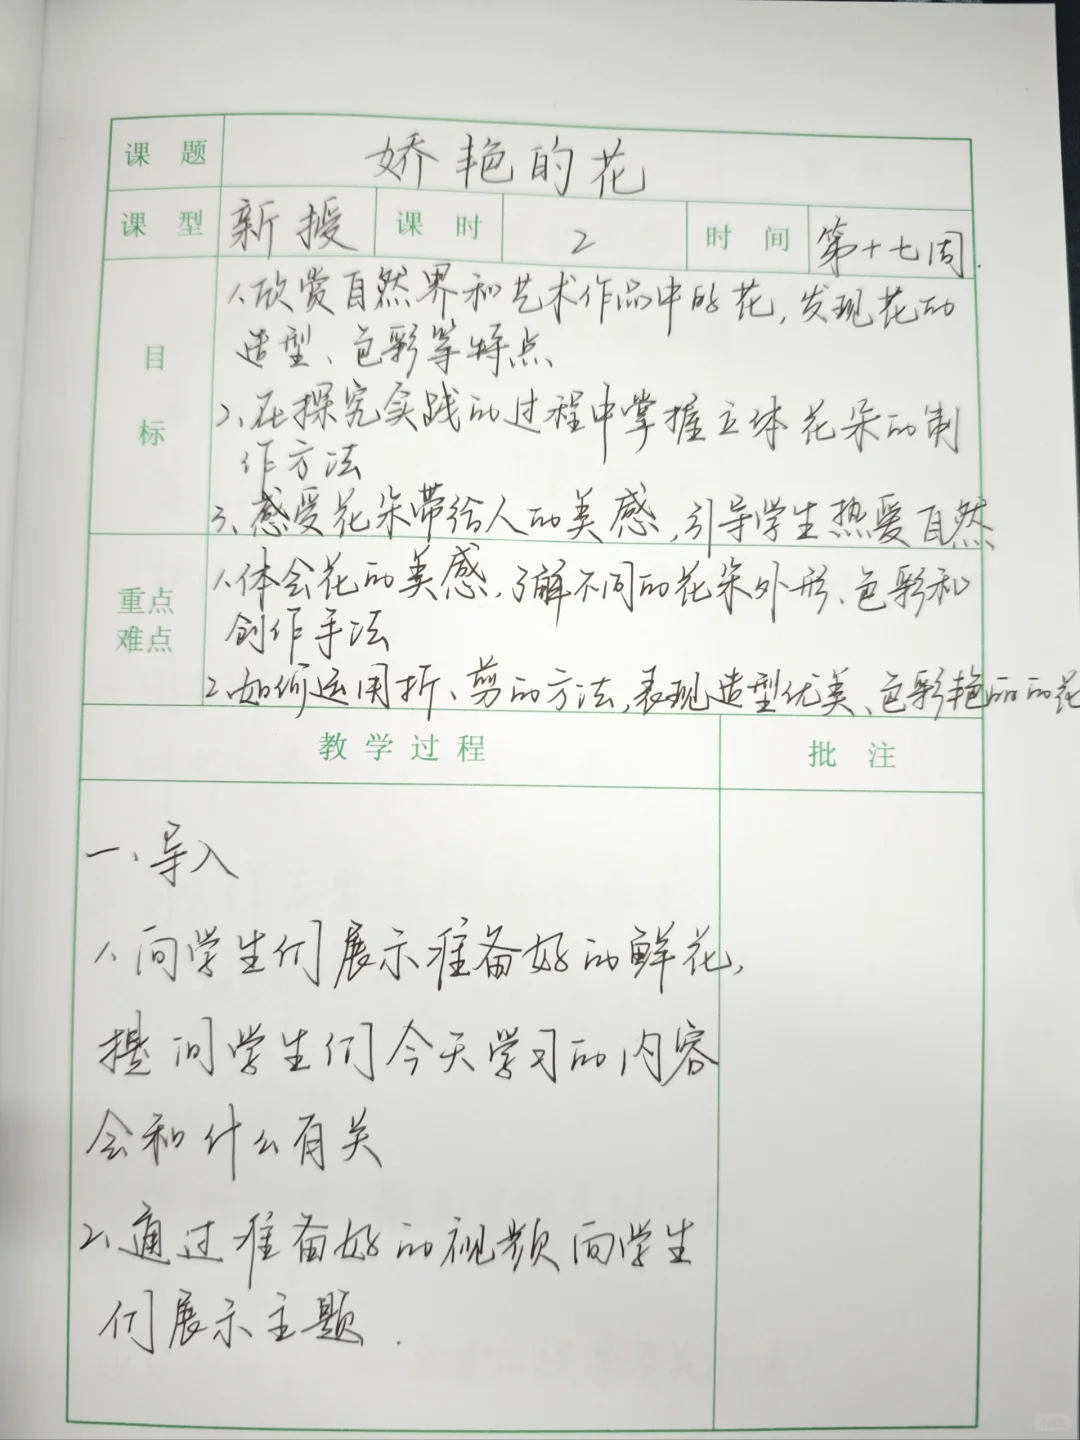 课 题 娇艳的花
课 型 新授 课 时 2 时 间 第十七周.
目 标
1、欣赏自然界和艺术作品中的花,发现花的
造型、色彩等特点
2、在探究实践的过程中掌握立体花朵的制
作方法
3、感受花朵带给人的美感,引导学生热爱自然
重点
难点
1、体会花的美感,了解不同的花朵外形、色彩和
创作手法
2、如何运用折、剪的方法,表现造型优美、色彩艳丽的花
教学过程 批 注
一、导入
1、向学生们展示准备好的鲜花,
提问学生们今天学习的内容
会和什么有关
2、通过准备好的视频向学生
们展示主题.